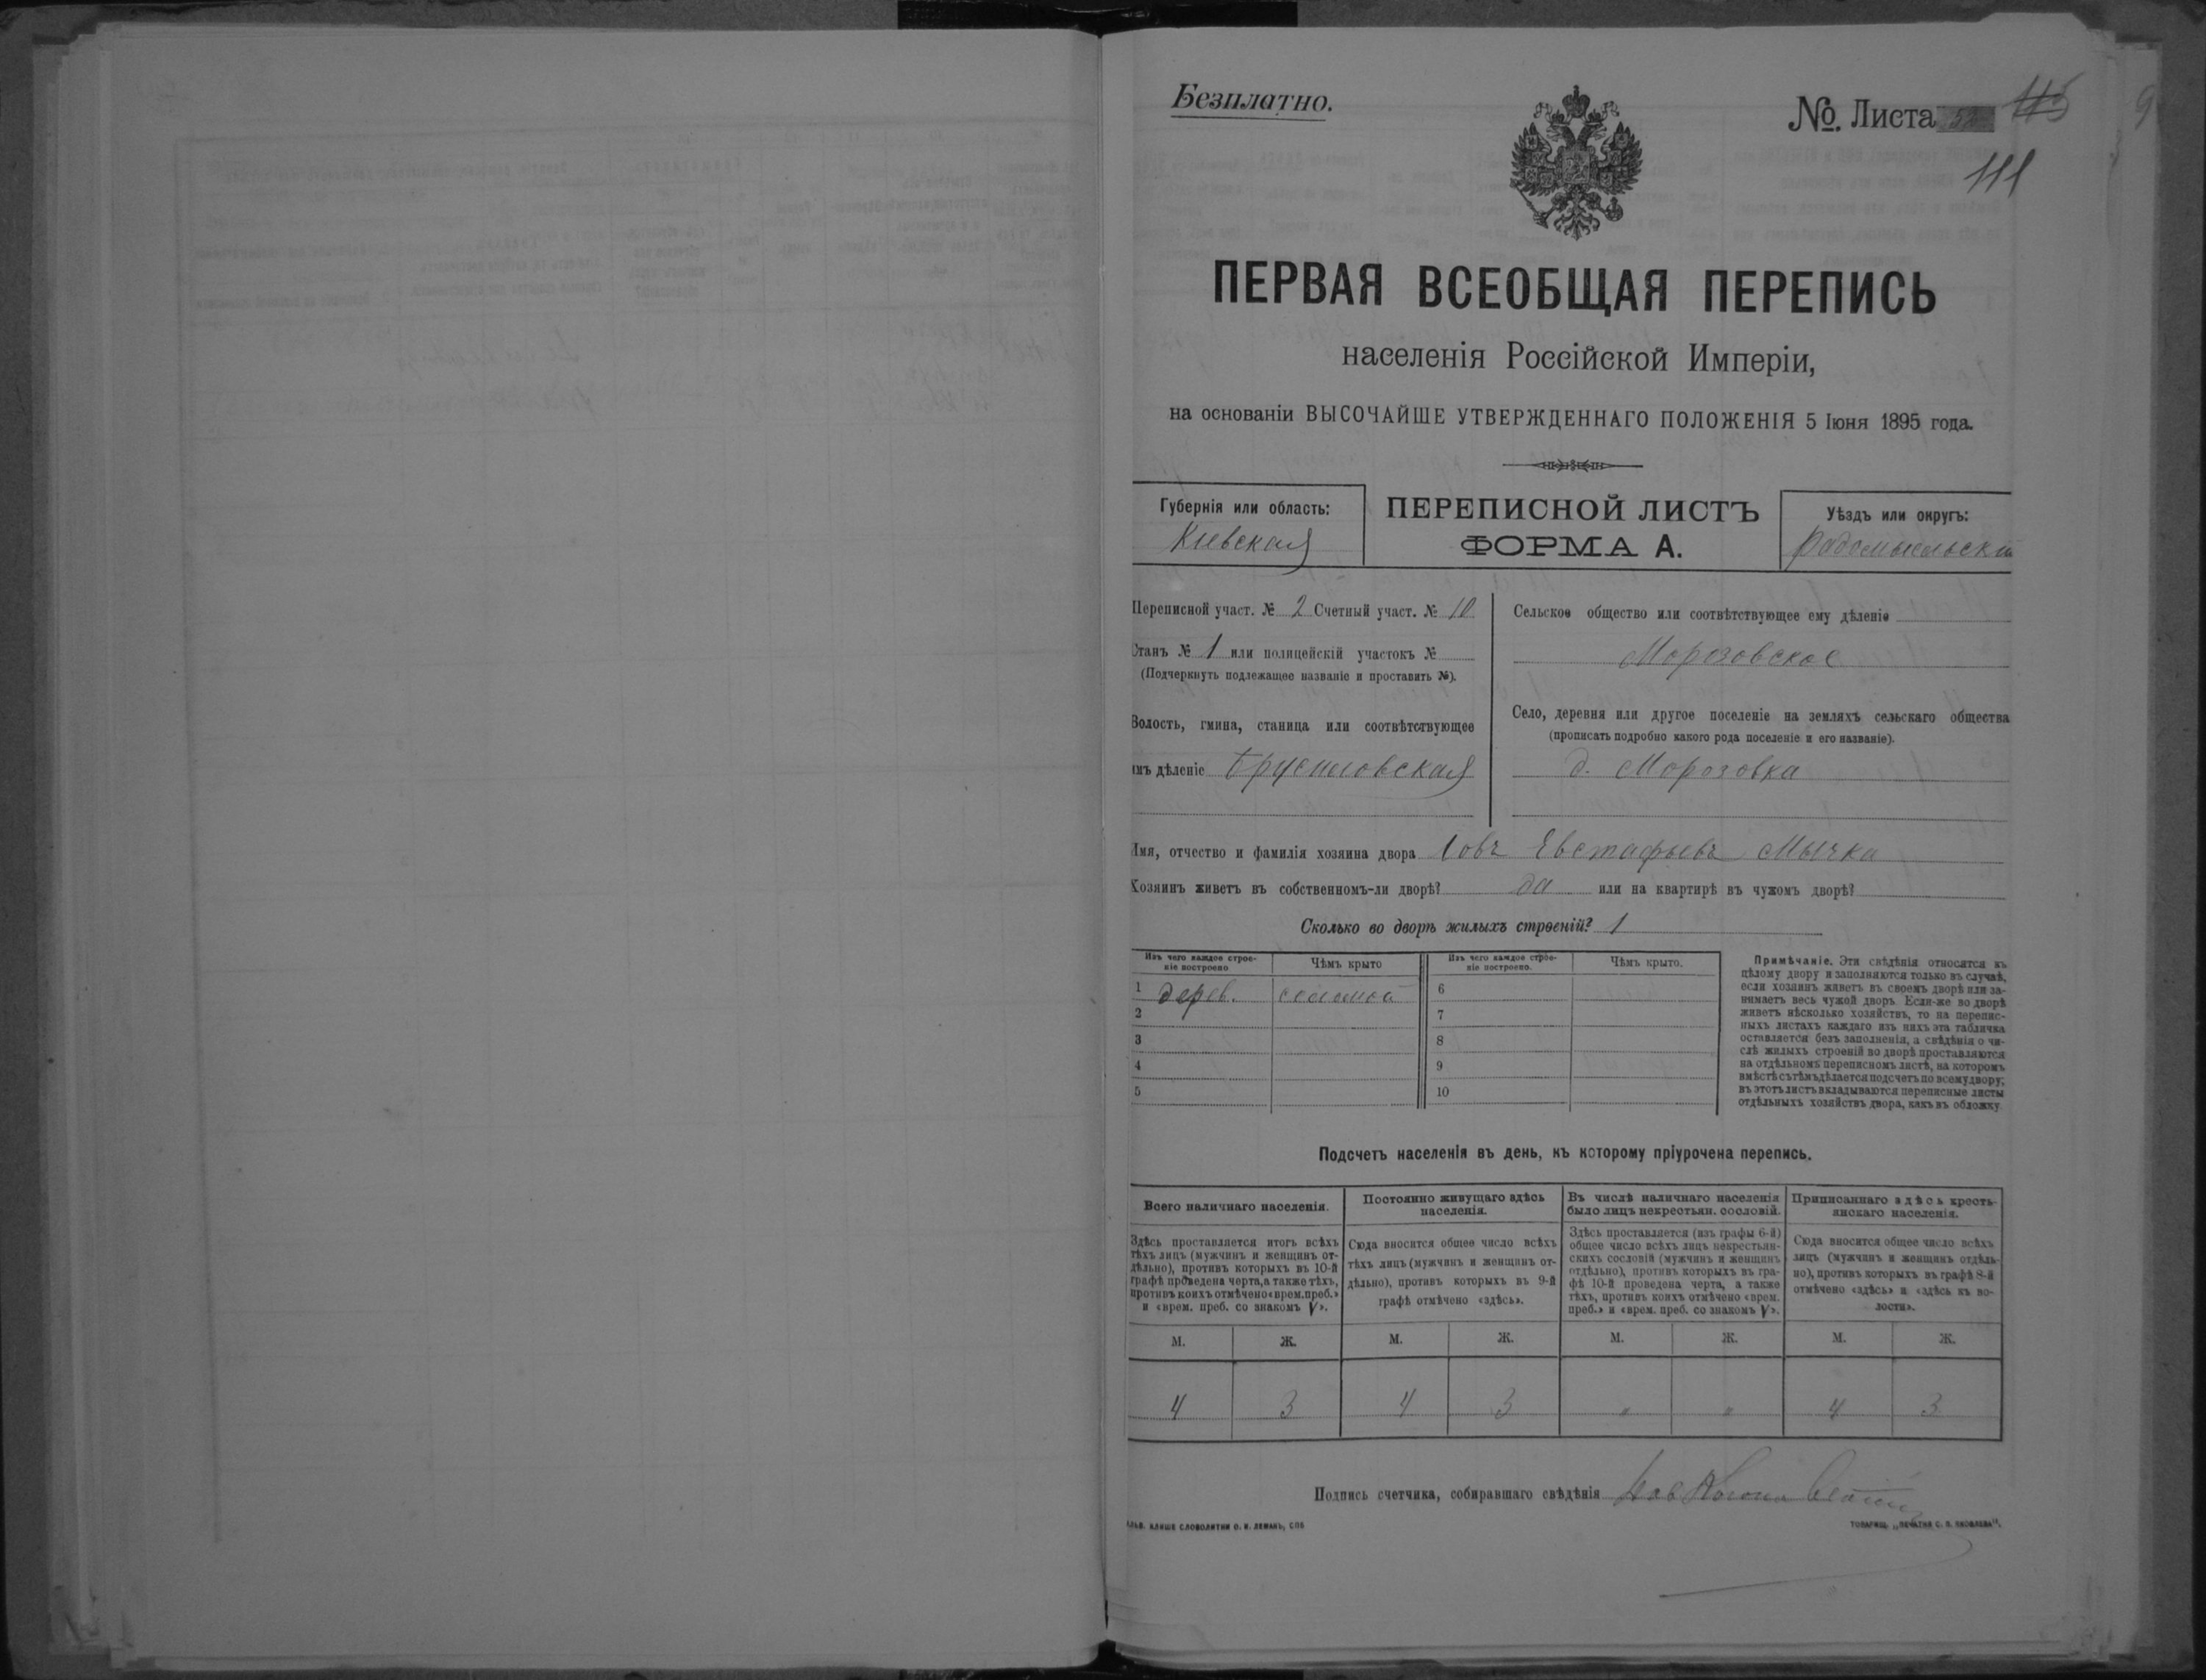 Безплатно.
№ Листа 52 115
111
ПЕРВАЯ ВСЕОБЩАЯ ПЕРЕПИСЬ
населенія Россійской Имперіи,
на основаніи ВЫСОЧАЙШЕ УТВЕРЖДЕННАГО ПОЛОЖЕНІЯ 5 Іюня 1895 года.
Губернія или область:
Кіевская
ПЕРЕПИСНОЙ ЛИСТЪ
ФОРМА А.
Уѣздъ или округъ:
Радомысльскій
Переписной участ. № 2 Счетный участ. № 10
Станъ № 1 или полицейскій участокъ №
(Подчеркнуть подлежащее названіе и проставить №).
Волость, гмина, станица или соотвѣтствующее
имъ дѣленіе Брусиловская
Сельское общество или соотвѣтствующее ему дѣленіе
Морозовское
Село, деревня или другое поселеніе на земляхъ сельскаго общества
(прописать подробно какого рода поселеніе и его названіе).
д. Морозовка
Имя, отчество и фамилія хозяина двора Іовъ Евстафьевъ Мычка
Хозяинъ живетъ въ собственномъ-ли дворѣ? да или на квартирѣ въ чужомъ дворѣ?
Сколько во дворѣ жилыхъ строеній? 1
Изъ чего каждое строе-
ніе построено
Чѣмъ крыто
Изъ чего каждое строе-
ніе построено.
Чѣмъ крыто.
1 дерев. соломой
2
3
4
5
6
7
8
9
10
Примѣчаніе. Эти свѣдѣнія относятся къ
цѣлому двору и заполняются только въ случаѣ,
если хозяинъ живетъ въ своемъ дворѣ или за-
нимаетъ весь чужой дворъ. Если-же во дворѣ
живетъ нѣсколько хозяйствъ, то на перепис-
ныхъ листахъ каждаго изъ нихъ эта табличка
оставляется безъ заполненія, а свѣдѣнія о чи-
слѣ жилыхъ строеній во дворѣ проставляются
на отдѣльномъ переписномъ листѣ, на которомъ
вмѣстѣ съ тѣмъ дѣлается подсчетъ по всему двору;
въ этотъ листъ вкладываются переписные листы
отдѣльныхъ хозяйствъ двора, какъ въ обложку.
Подсчетъ населенія въ день, къ которому пріурочена перепись.
Всего наличнаго населенія.
Здѣсь проставляется итогъ всѣхъ
тѣхъ лицъ (мужчинъ и женщинъ от-
дѣльно), противъ которыхъ въ 10-й
графѣ проведена черта, а также тѣхъ,
противъ коихъ отмѣчено «врем. преб.»
и «врем. преб. со знакомъ V».
Постоянно живущаго здѣсь
населенія.
Сюда вносится общее число всѣхъ
тѣхъ лицъ (мужчинъ и женщинъ от-
дѣльно), противъ которыхъ въ 9-й
графѣ отмѣчено «здѣсь».
Въ числѣ наличнаго населенія
было лицъ некрестьян. сословій.
Здѣсь проставляется (изъ графы 6-й)
общее число всѣхъ лицъ некрестьян-
скихъ сословій (мужчинъ и женщинъ
отдѣльно), противъ которыхъ въ гра-
фѣ 10-й проведена черта, а также
тѣхъ, противъ коихъ отмѣчено «врем.
преб.» и «врем. преб. со знакомъ V».
Приписаннаго здѣсь кресть-
янскаго населенія.
Сюда вносится общее число всѣхъ
лицъ (мужчинъ и женщинъ отдѣль-
но), противъ которыхъ въ графѣ 8-й
отмѣчено «здѣсь» и «здѣсь къ во-
лости».
М. Ж. М. Ж. М. Ж. М. Ж.
4 3 4 3 " " 4 3
Подпись счетчика, собиравшаго свѣдѣнія
КЛИШЕ СЛОВОЛИТНИ О. И. ЛЕМАНЪ, СПБ
ТОВАРИЩ. „ПЕЧАТНЯ С. П. ЯКОВЛЕВА".